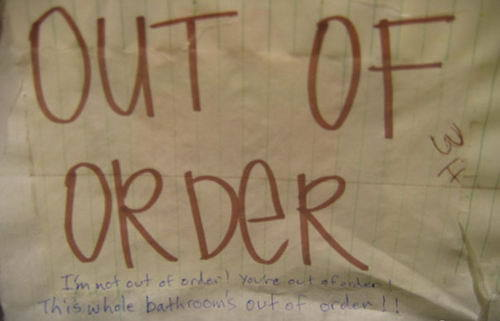 OUT OF
ORDeR
I'm not out of order! You're out of order!
This whole bathroom's out of order!!